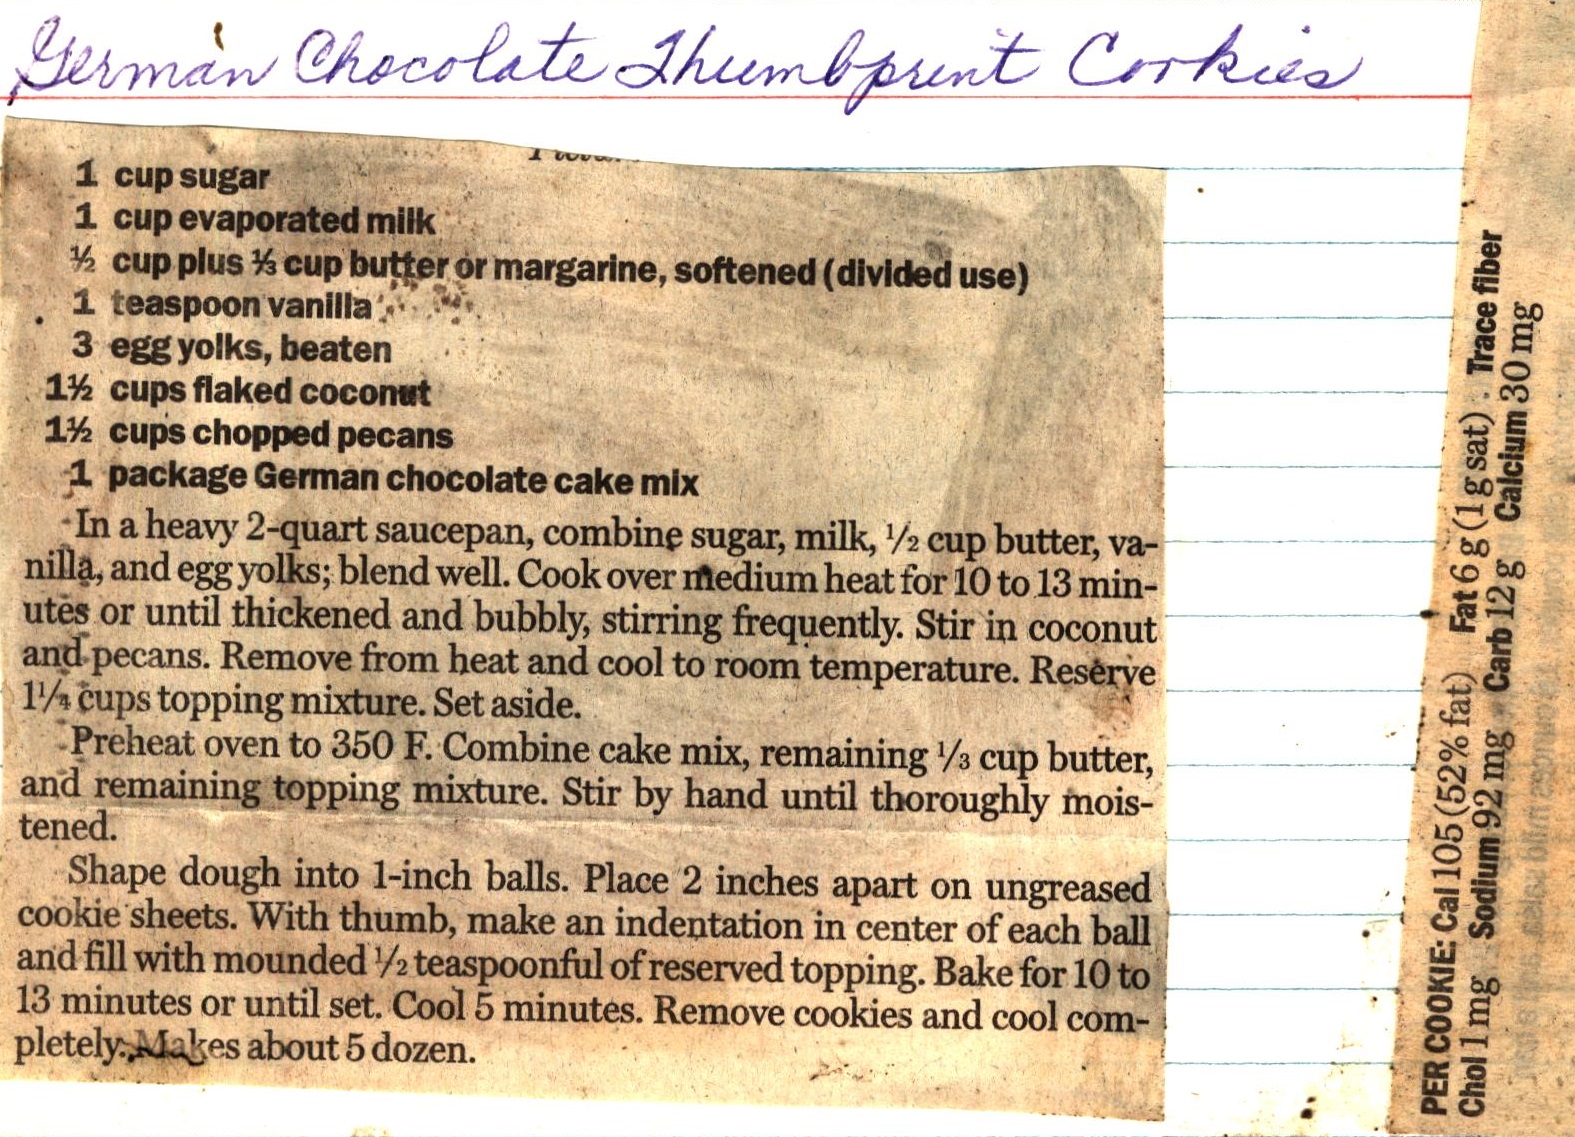 German Chocolate Thumbprint Cookies
1 cup sugar
1 cup evaporated milk
½ cup plus ⅓ cup butter or margarine, softened (divided use)
1 teaspoon vanilla
3 egg yolks, beaten
1½ cups flaked coconut
1½ cups chopped pecans
1 package German chocolate cake mix
In a heavy 2-quart saucepan, combine sugar, milk, ½ cup butter, va-
nilla, and egg yolks; blend well. Cook over medium heat for 10 to 13 min-
utes or until thickened and bubbly, stirring frequently. Stir in coconut
and pecans. Remove from heat and cool to room temperature. Reserve
1¼ cups topping mixture. Set aside.
Preheat oven to 350 F. Combine cake mix, remaining ⅓ cup butter,
and remaining topping mixture. Stir by hand until thoroughly mois-
tened.
Shape dough into 1-inch balls. Place 2 inches apart on ungreased
cookie sheets. With thumb, make an indentation in center of each ball
and fill with mounded ½ teaspoonful of reserved topping. Bake for 10 to
13 minutes or until set. Cool 5 minutes. Remove cookies and cool com-
pletely. Makes about 5 dozen.
PER COOKIE: Cal 105 (52% fat) Fat 6 g (1 g sat) Trace fiber
Chol 1 mg Sodium 92 mg Carb 12 g Calcium 30 mg